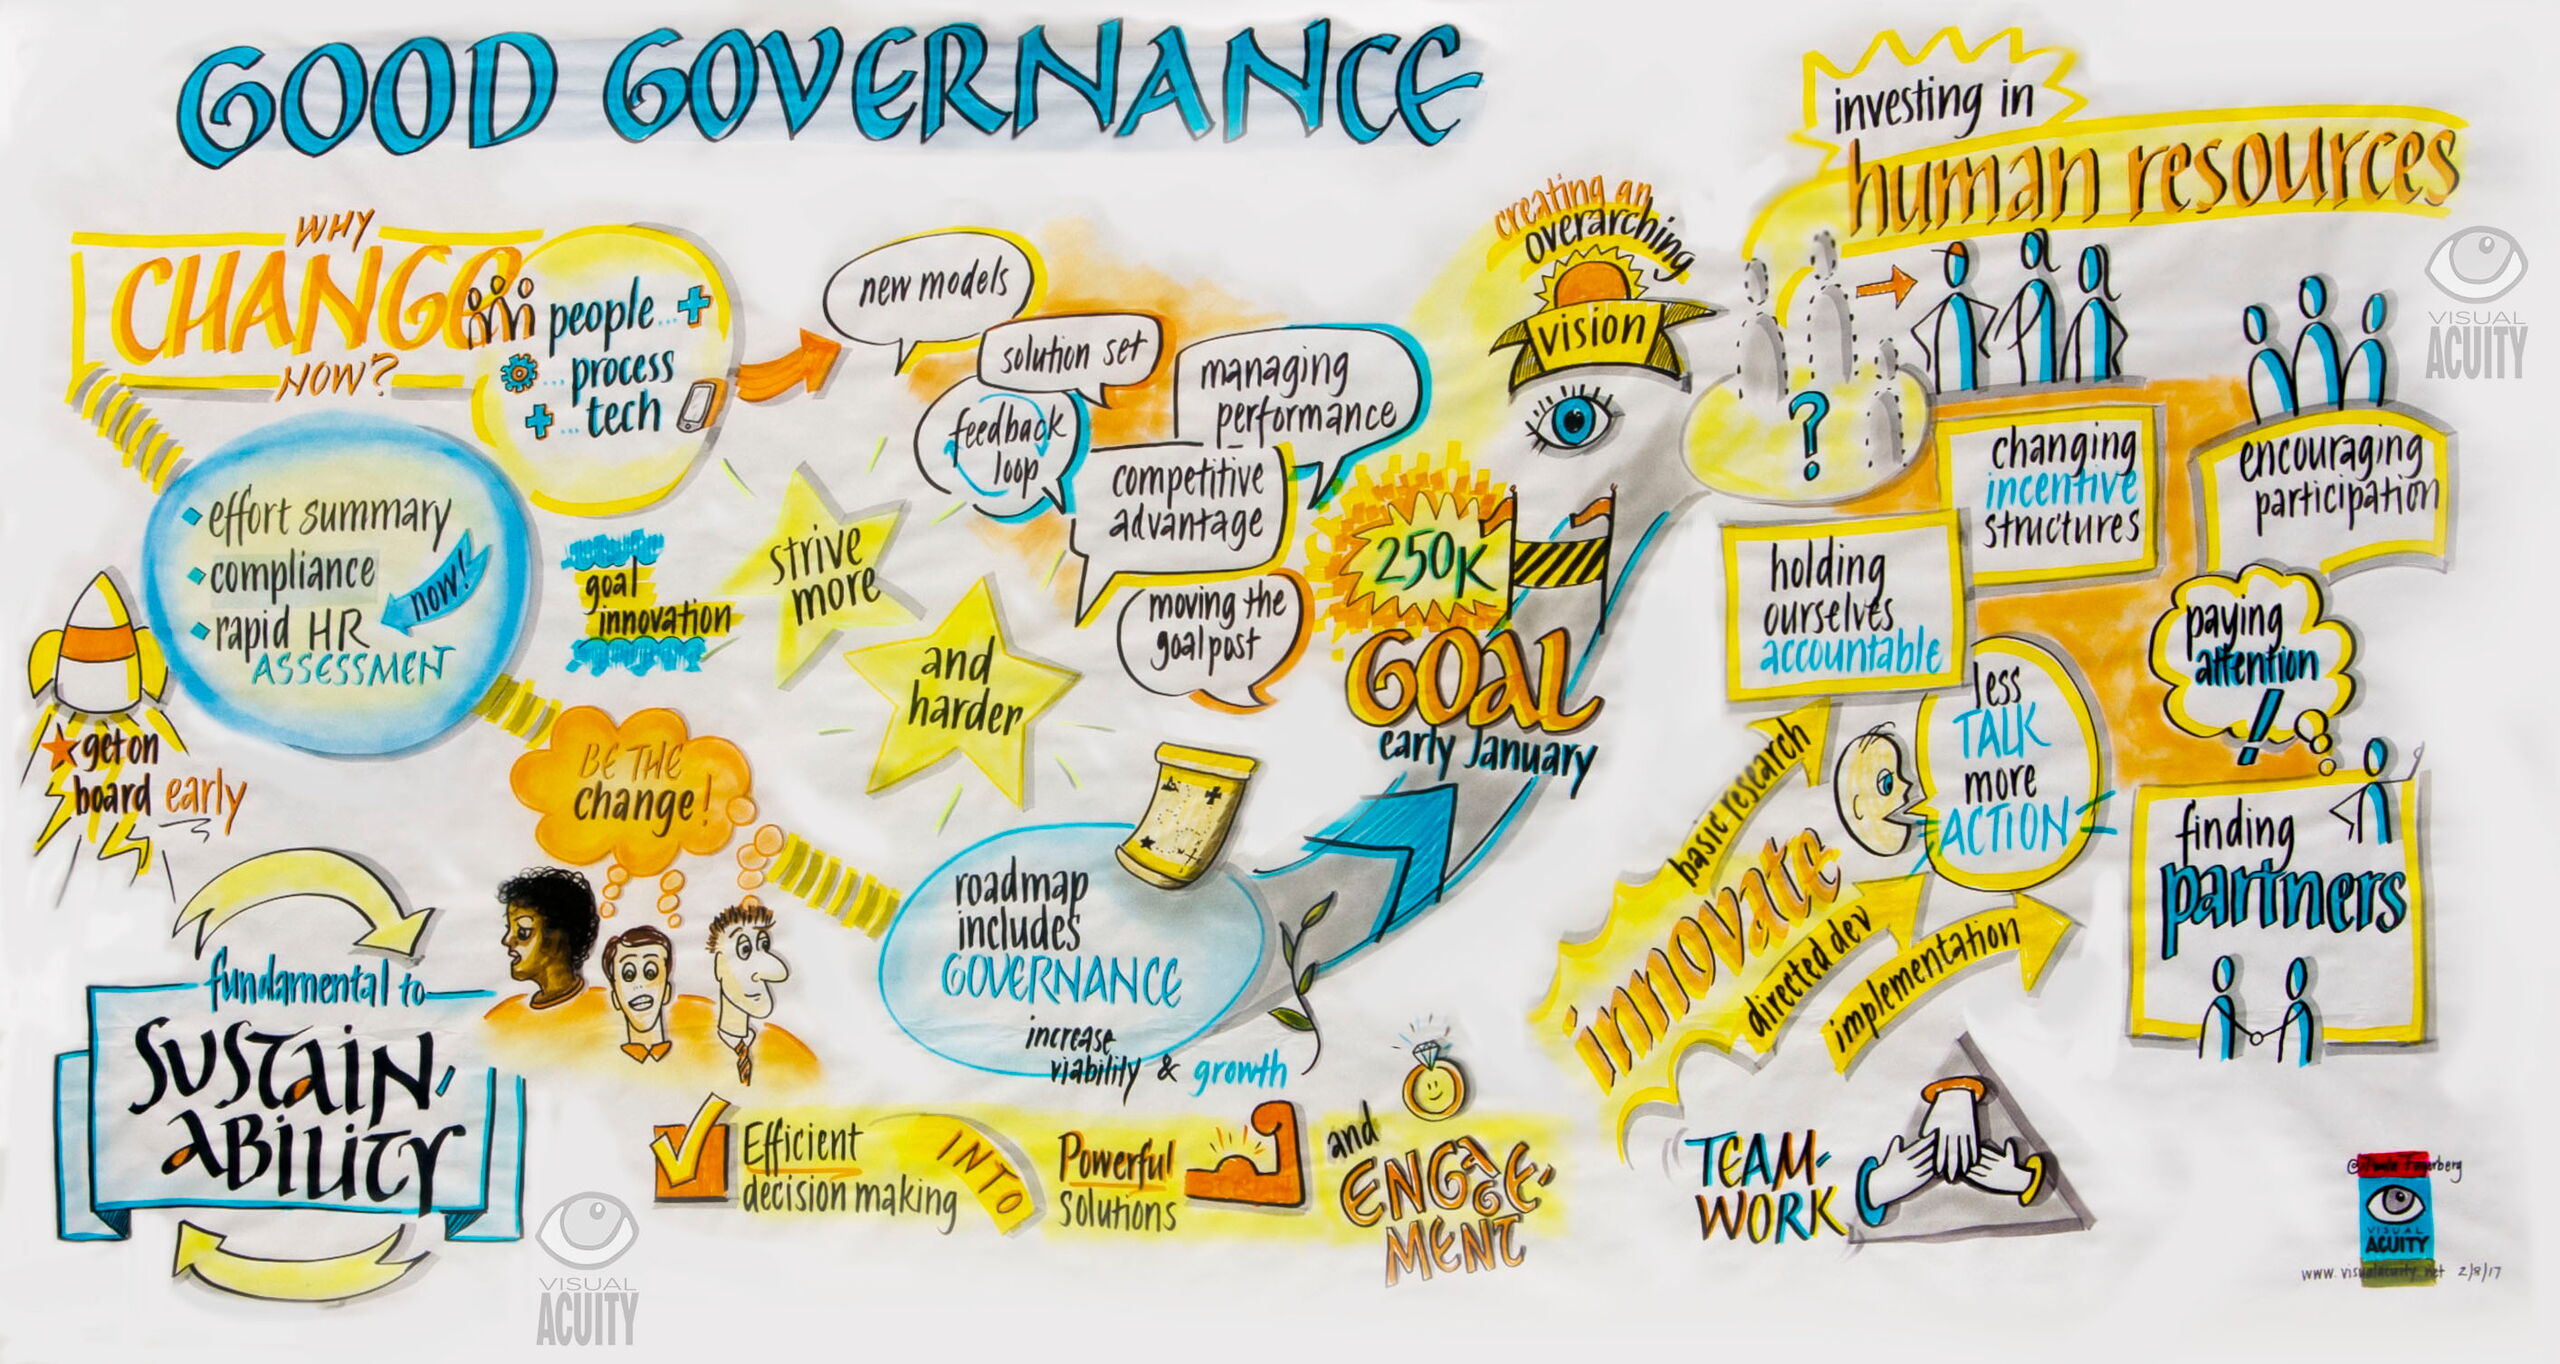 GOOD GOVERNANCE
WHY
CHANGE
NOW?
people...+
process
+...tech
new models
solution set
feedback
loop
managing
performance
competitive
advantage
moving the
goalpost
effort summary
compliance
rapid HR
ASSESSMENT
now!
get on
board early
goal
innovation
strive
more
and
harder
BE THE
change!
fundamental to
SUSTAIN-
ABILITY
roadmap
includes
GOVERNANCE
increase
viability & growth
Efficient
decision making
INTO
Powerful
Solutions
and
ENGAGE-
MENT
250K
GOAL
early January
creating an
overarching
vision
investing in
human resources
?
changing
incentive
structures
encouraging
participation
holding
ourselves
accountable
paying
attention
!
less
TALK
more
ACTION
finding
partners
basic research
innovate
directed dev
implementation
TEAM-
WORK
VISUAL
ACUITY
VISUAL
ACUITY
VISUAL
ACUITY
www.visualacuity.net 2/8/17